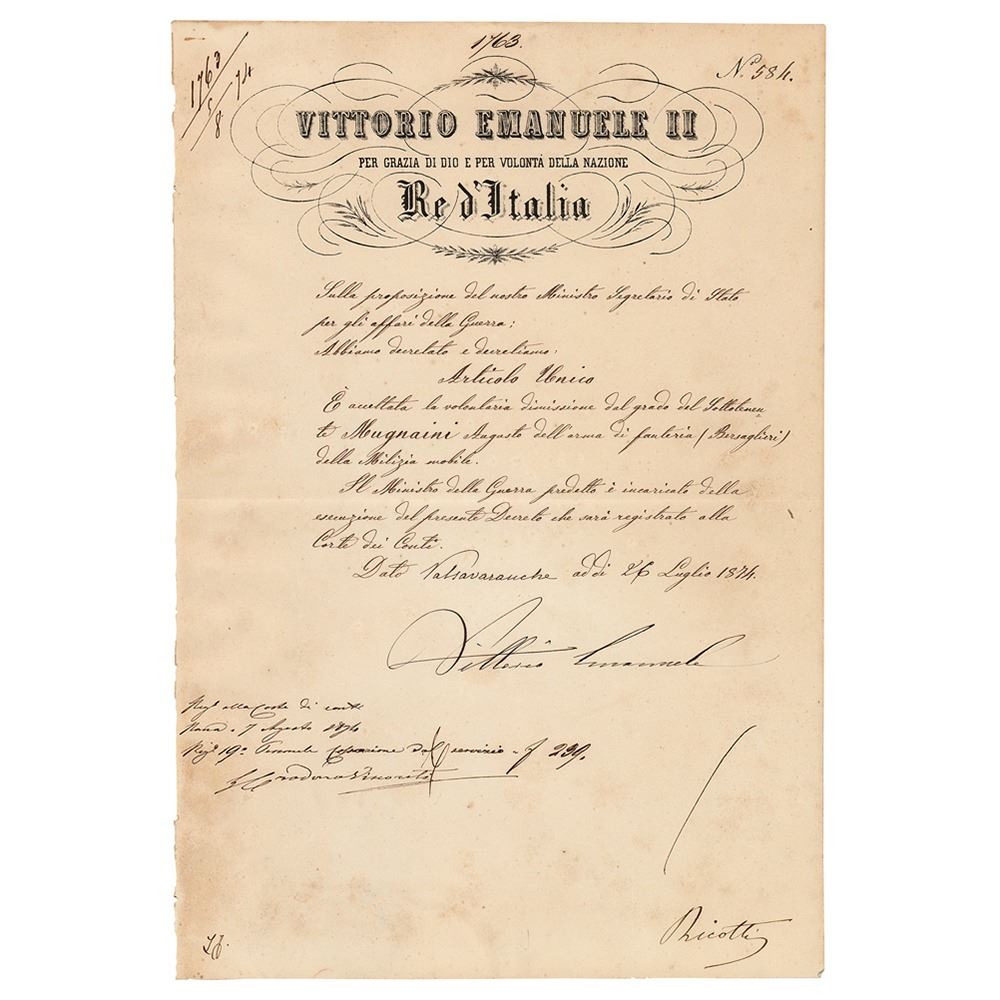 1763.
1763
8 74
Nº 584.
VITTORIO EMANUELE II
PER GRAZIA DI DIO E PER VOLONTÀ DELLA NAZIONE
Re d'Italia
Sulla proposizione del nostro Ministro Segretario di Stato
per gli affari della Guerra;
Abbiamo decretato e decretiamo:
Articolo Unico
È accettata la volontaria dimissione dal grado del Sottotenen-
te Mugnaini Augusto dell'arma di fanteria (Bersaglieri)
della Milizia mobile.
Il Ministro della Guerra predetto è incaricato della
esecuzione del presente Decreto che sarà registrato alla
Corte dei Conti.
Dato Valsavaranche addì 26 Luglio 1874.
Vittorio Emanuele
Regº alla Corte di conti
7 Agosto 1874
Regº 19º Personale Cessazione dal servizio f 239.
Ricotti